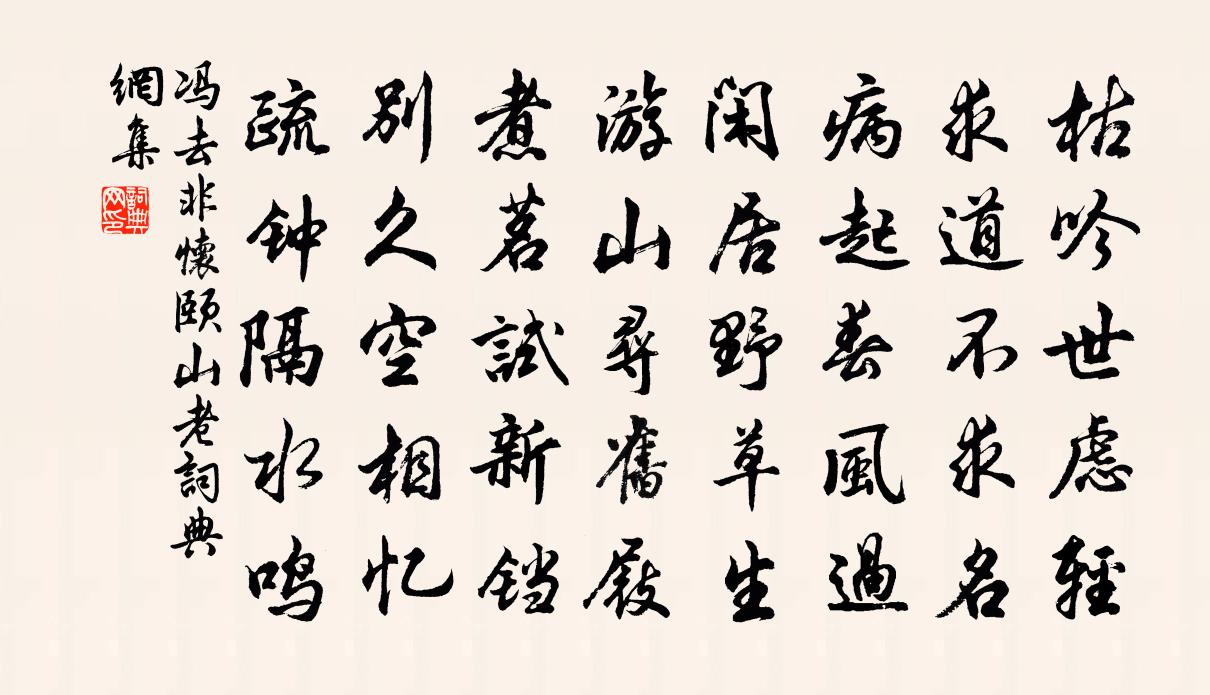 枯吟世虑輕
求道不求名
病起春風過
闲居野草生
游山尋舊屐
煮茗試新铛
别久空相忆
疏钟隔水鸣
冯去非懷颐山老詞典
網集
詞典
网印